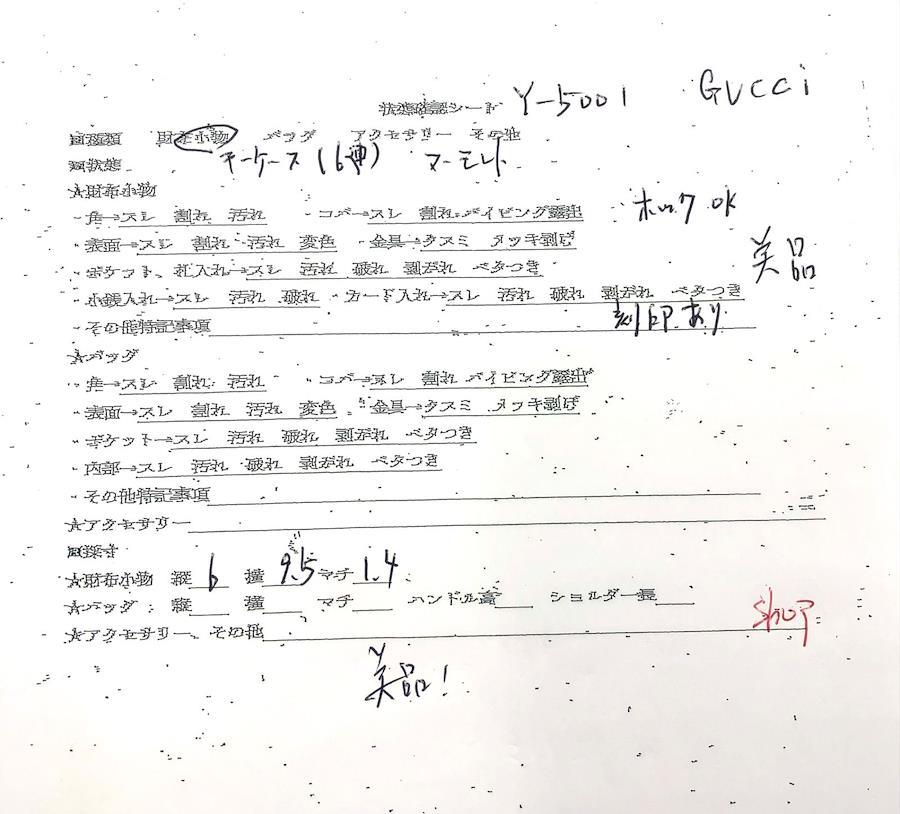 状態確認シート Y-5001 GUCCI
■種類 財布小物 バッグ アクセサリー その他
■状態 キーケース(6連) マーモント
★財布小物
・角→スレ 割れ 汚れ ・コバ→スレ 割れ パイピング露出 ホック OK
・表面→スレ 割れ 汚れ 変色 ・金具→クスミ メッキ剥げ
美品
・ポケット、札入れ→スレ 汚れ 破れ 剥がれ ベタつき
・小銭入れ→スレ 汚れ 破れ ・カード入れ→スレ 汚れ 破れ 剥がれ ベタつき
・その他特記事項 刻印あり
★バッグ
・角→スレ 割れ 汚れ ・コバ→スレ 割れ パイピング露出
・表面→スレ 割れ 汚れ 変色 ・金具→クスミ メッキ剥げ
・ポケット→スレ 汚れ 破れ 剥がれ ベタつき
・内部→スレ 汚れ 破れ 剥がれ ベタつき
・その他特記事項
★アクセサリー
■採寸
★財布小物 縦 6 横 9.5 マチ 1.4
★バッグ:縦 横 マチ ハンドル高 ショルダー長
★アクセサリー、その他 SHOP
美品!